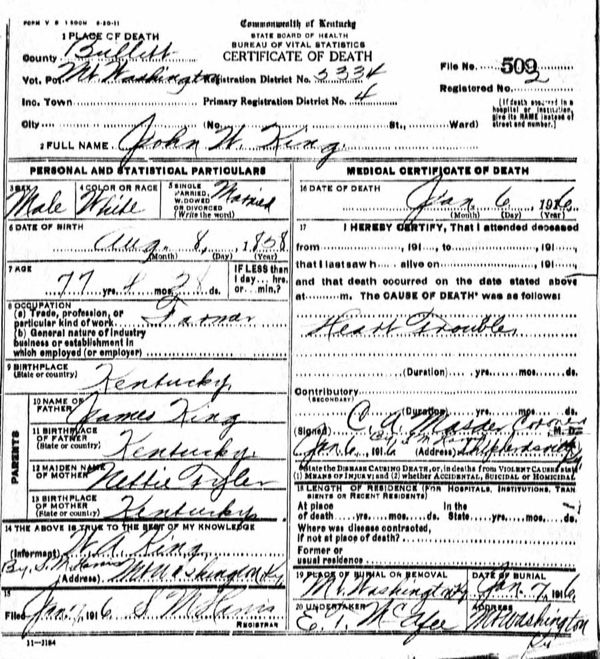 FORM V S 1 500M 8-20-11
Commonwealth of Kentucky
STATE BOARD OF HEALTH
BUREAU OF VITAL STATISTICS
CERTIFICATE OF DEATH
1 PLACE OF DEATH
County Bullitt
Vot. Pct Mt Washington Registration District No. 5334
File No. 509
2
Inc. Town Primary Registration District No. 4
Registered No.
City (No. St., Ward)
(If death occurred in a hospital or institution, give its NAME instead of street and number.)
2 FULL NAME John W. King
PERSONAL AND STATISTICAL PARTICULARS
3 SEX Male
4 COLOR OR RACE White
5 SINGLE MARRIED, WIDOWED OR DIVORCED (Write the word) Married
6 DATE OF BIRTH
Aug. 8, 1838
(Month) (Day) (Year)
7 AGE
77 yrs. 8 mos. 28 ds.
IF LESS than 1 day... hrs. or... min.?
8 OCCUPATION
(a) Trade, profession, or particular kind of work Farmar
(b) General nature of industry business or establishment in which employed (or employer)
9 BIRTHPLACE
(State or country) Kentucky
PARENTS
10 NAME OF FATHER James King
11 BIRTHPLACE OF FATHER (State or country) Kentucky
12 MAIDEN NAME OF MOTHER Mettie Tyler
13 BIRTHPLACE OF MOTHER (State or country) Kentucky
14 THE ABOVE IS TRUE TO THE BEST OF MY KNOWLEDGE
(Informant) King
By S. M.
(Address) Mt Washington Ky
15
Filed Jan 1916 S M
REGISTRAR
11-3184
MEDICAL CERTIFICATE OF DEATH
16 DATE OF DEATH
Jan 6 1916
(Month) (Day) (Year)
17 I HEREBY CERTIFY, That I attended deceased
from , 191 , to , 191 ,
that I last saw h alive on , 191 ,
and that death occurred on the date stated above
at m. The CAUSE OF DEATH* was as follows:
Heart Trouble
(Duration) yrs. mos. ds.
Contributory
(SECONDARY)
(Duration) yrs. mos. ds.
(Signed) C. A. Coroner M. D.
Jan 6, 1916 By S M (Address) Shepherdsville
*State the DISEASE CAUSING DEATH, or, in deaths from VIOLENT CAUSES state (1) MEANS OF INJURY; and (2) whether ACCIDENTAL, SUICIDAL or HOMICIDAL
18 LENGTH OF RESIDENCE (FOR HOSPITALS, INSTITUTIONS, TRANSIENTS OR RECENT RESIDENTS)
At place of death yrs. mos. ds. In the State yrs. mos. ds.
Where was disease contracted,
if not at place of death?
Former or
usual residence
19 PLACE OF BURIAL OR REMOVAL Mt Washington Ky
DATE OF BURIAL Jan. 7, 1916
20 UNDERTAKER E. T. McAfee
ADDRESS Mt Washington Ky